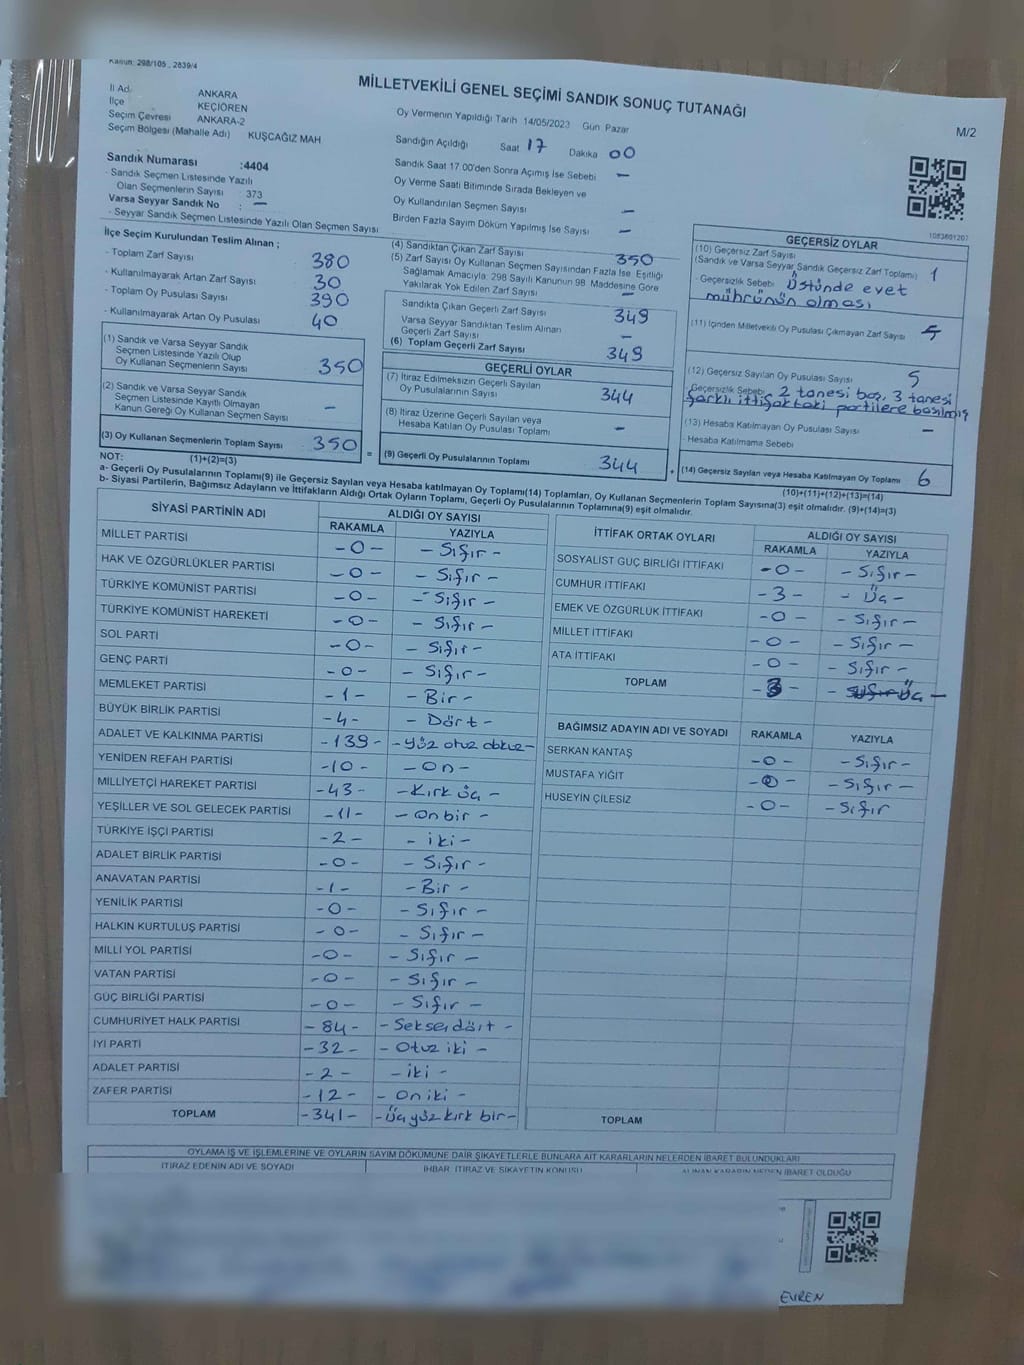 Kanun: 298/105 , 2839/4
MİLLETVEKİLİ GENEL SEÇİMİ SANDIK SONUÇ TUTANAĞI
M/2
İl Adı ANKARA
İlçe KEÇİÖREN
Seçim Çevresi ANKARA-2
Seçim Bölgesi (Mahalle Adı) KUŞCAĞIZ MAH
Oy Vermenin Yapıldığı Tarih 14/05/2023 Gün Pazar
Sandığın Açıldığı Saat 17 Dakika 00
Sandık Saat 17 00'den Sonra Açımış İse Sebebi —
Oy Verme Saati Bitiminde Sırada Bekleyen ve
Oy Kullandırılan Seçmen Sayısı —
Birden Fazla Sayım Döküm Yapılmış İse Sayısı —
Sandık Numarası :4404
- Sandık Seçmen Listesinde Yazılı
Olan Seçmenlerin Sayısı 373
Varsa Seyyar Sandık No : —
- Seyyar Sandık Seçmen Listesinde Yazılı Olan Seçmen Sayısı
1083601207
İlçe Seçim Kurulundan Teslim Alınan ;
- Toplam Zarf Sayısı 380
- Kullanılmayarak Artan Zarf Sayısı 30
- Toplam Oy Pusulası Sayısı 390
- Kullanılmayarak Artan Oy Pusulası 40
(1) Sandık ve Varsa Seyyar Sandık
Seçmen Listesinde Yazılı Olup
Oy Kullanan Seçmenlerin Sayısı 350
(2) Sandık ve Varsa Seyyar Sandık
Seçmen Listesinde Kayıtlı Olmayan
Kanun Gereği Oy Kullanan Seçmen Sayısı —
(3) Oy Kullanan Seçmenlerin Toplam Sayısı 350
(1)+(2)=(3)
(4) Sandıktan Çıkan Zarf Sayısı 350
(5) Zarf Sayısı Oy Kullanan Seçmen Sayısından Fazla İse, Eşitliği
Sağlamak Amacıyla 298 Sayılı Kanunun 98 Maddesine Göre
Yakılarak Yok Edilen Zarf Sayısı —
Sandıkta Çıkan Geçerli Zarf Sayısı 349
Varsa Seyyar Sandıktan Teslim Alınan
Geçerli Zarf Sayısı —
(6) Toplam Geçerli Zarf Sayısı 349
GEÇERLİ OYLAR
(7) İtiraz Edilmeksizin Geçerli Sayılan
Oy Pusulalarının Sayısı 344
(8) İtiraz Üzerine Geçerli Sayılan veya
Hesaba Katılan Oy Pusulası Toplamı —
= (9) Geçerli Oy Pusulalarının Toplamı 344 +
GEÇERSİZ OYLAR
(10) Geçersiz Zarf Sayısı
(Sandık ve Varsa Seyyar Sandık Geçersiz Zarf Toplamı) 1
- Geçersizlik Sebebi Üstünde evet
mührünün olması
(11) İçinden Milletvekili Oy Pusulası Çıkmayan Zarf Sayısı
(12) Geçersiz Sayılan Oy Pusulası Sayısı 5
- Geçersizlik Sebebi 2 tanesi boş, 3 tanesi
farklı ittifaktaki partilere basılmış
(13) Hesaba Katılmayan Oy Pusulası Sayısı —
- Hesaba Katılmama Sebebi
(14) Geçersiz Sayılan veya Hesaba Katılmayan Oy Toplamı 6
(10)+(11)+(12)+(13)=(14)
NOT:
a- Geçerli Oy Pusulalarının Toplamı(9) ile Geçersiz Sayılan veya Hesaba katılmayan Oy Toplamı(14) Toplamları, Oy Kullanan Seçmenlerin Toplam Sayısına(3) eşit olmalıdır. (9)+(14)=(3)
b- Siyasi Partilerin, Bağımsız Adayların ve İttifakların Aldığı Ortak Oyların Toplamı, Geçerli Oy Pusulalarının Toplamına(9) eşit olmalıdır.
SİYASİ PARTİNİN ADI ALDIĞI OY SAYISI
RAKAMLA YAZIYLA
MİLLET PARTİSİ -0- -Sıfır-
HAK VE ÖZGÜRLÜKLER PARTİSİ -0- -Sıfır-
TÜRKİYE KOMÜNİST PARTİSİ -0- -Sıfır-
TÜRKİYE KOMÜNİST HAREKETİ -0- -Sıfır-
SOL PARTİ -0- -Sıfır-
GENÇ PARTİ -0- -Sıfır-
MEMLEKET PARTİSİ -1- -Bir-
BÜYÜK BİRLİK PARTİSİ -4- -Dört-
ADALET VE KALKINMA PARTİSİ -139- -yüz otuz dokuz-
YENİDEN REFAH PARTİSİ -10- -On-
MİLLİYETÇİ HAREKET PARTİSİ -43- -Kırk üç-
YEŞİLLER VE SOL GELECEK PARTİSİ -11- -Onbir-
TÜRKİYE İŞÇİ PARTİSİ -2- -iki-
ADALET BİRLİK PARTİSİ -0- -Sıfır-
ANAVATAN PARTİSİ -1- -Bir-
YENİLİK PARTİSİ -0- -Sıfır-
HALKIN KURTULUŞ PARTİSİ -0- -Sıfır-
MİLLİ YOL PARTİSİ -0- -Sıfır-
VATAN PARTİSİ -0- -Sıfır-
GÜÇ BİRLİĞİ PARTİSİ -0- -Sıfır-
CUMHURİYET HALK PARTİSİ -84- -Seksendört-
İYİ PARTİ -32- -Otuz iki-
ADALET PARTİSİ -2- -iki-
ZAFER PARTİSİ -12- -On iki-
TOPLAM -341- -Üç yüz kırk bir-
İTTİFAK ORTAK OYLARI ALDIĞI OY SAYISI
RAKAMLA YAZIYLA
SOSYALİST GÜÇ BİRLİĞİ İTTİFAKI -0- -Sıfır-
CUMHUR İTTİFAKI -3- -Üç-
EMEK VE ÖZGÜRLÜK İTTİFAKI -0- -Sıfır-
MİLLET İTTİFAKI -0- -Sıfır-
ATA İTTİFAKI -0- -Sıfır-
TOPLAM -3- -Sıfır Üç-
BAĞIMSIZ ADAYIN ADI VE SOYADI RAKAMLA YAZIYLA
SERKAN KANTAŞ -0- -Sıfır-
MUSTAFA YİĞİT -0- -Sıfır-
HÜSEYİN ÇİLESİZ -0- -Sıfır
TOPLAM
OYLAMA İŞ VE İŞLEMLERİNE VE OYLARIN SAYIM DÖKÜMÜNE DAİR ŞİKAYETLERLE BUNLARA AİT KARARLARIN NELERDEN İBARET BULUNDUKLARI
İTİRAZ EDENİN ADI VE SOYADI İHBAR, İTİRAZ VE ŞİKAYETİN KONUSU ALINAN KARARIN NEDEN İBARET OLDUĞU
EVREN